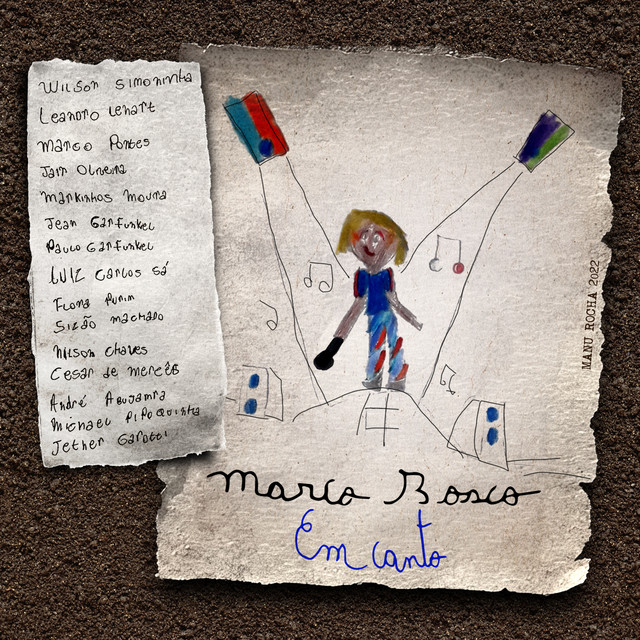 Wilson Simoninha
Leandro Lehart
Marco Pontes
Jair Oliveira
Markinhos Moura
Jean Garfunkel
Paulo Garfunkel
LUIZ Carlos Sá
Flora Purim
Sizão machado
Nilson chaves
Cesar de mercês
André Abujamra
Michael PIPOQUINHA
Jether Garotti
MANU ROCHA 2022
Marco Bosco
Em canto